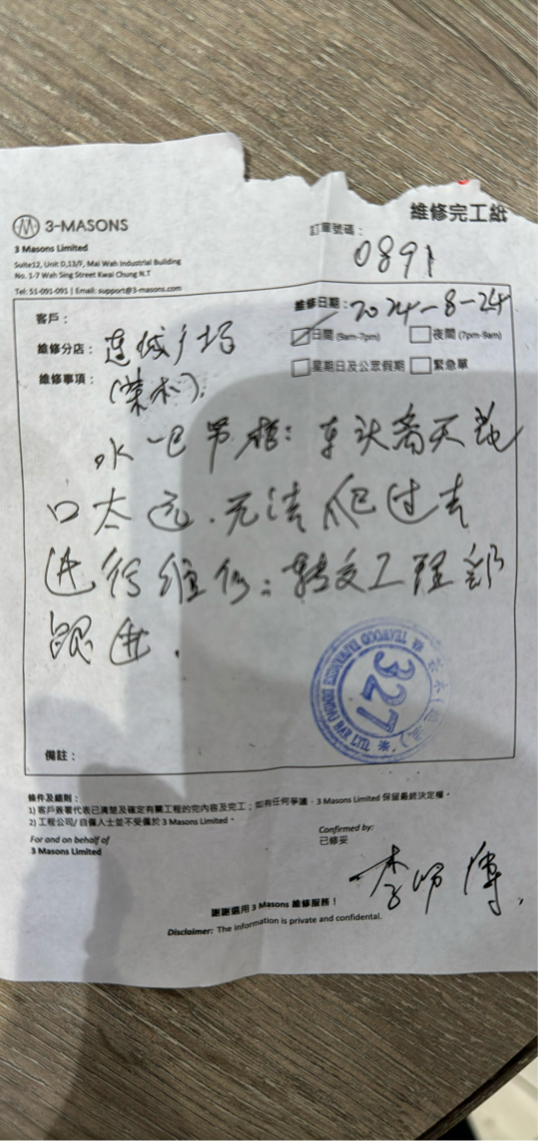 維修完工紙
3-MASONS
3 Masons Limited
Suite12, Unit D,13/F, Mai Wah Industrial Building
No. 1-7 Wah Sing Street Kwai Chung N.T
Tel: 51-091-091 | Email: support@3-masons.com
訂單號碼：
0891
客戶：
維修日期：2024-8-24
維修分店：连城广场
日間 (9am-7pm) 夜間 (7pm-9am)
維修事項：
星期日及公眾假期 緊急單
水吧 车头离天花
口太远.无法爬过去
进行维修：转交工程部
跟进.
327
備註：
條件及細則：
1) 客戶簽署代表已清楚及確定有關工程的完內容及完工；如有任何爭議，3 Masons Limited 保留最終決定權。
2) 工程公司/ 自僱人士並不受僱於 3 Masons Limited。
For and on behalf of
3 Masons Limited
Confirmed by:
已修妥
李师傅.
謝謝選用 3 Masons 維修服務！
Disclaimer: The information is private and confidential.